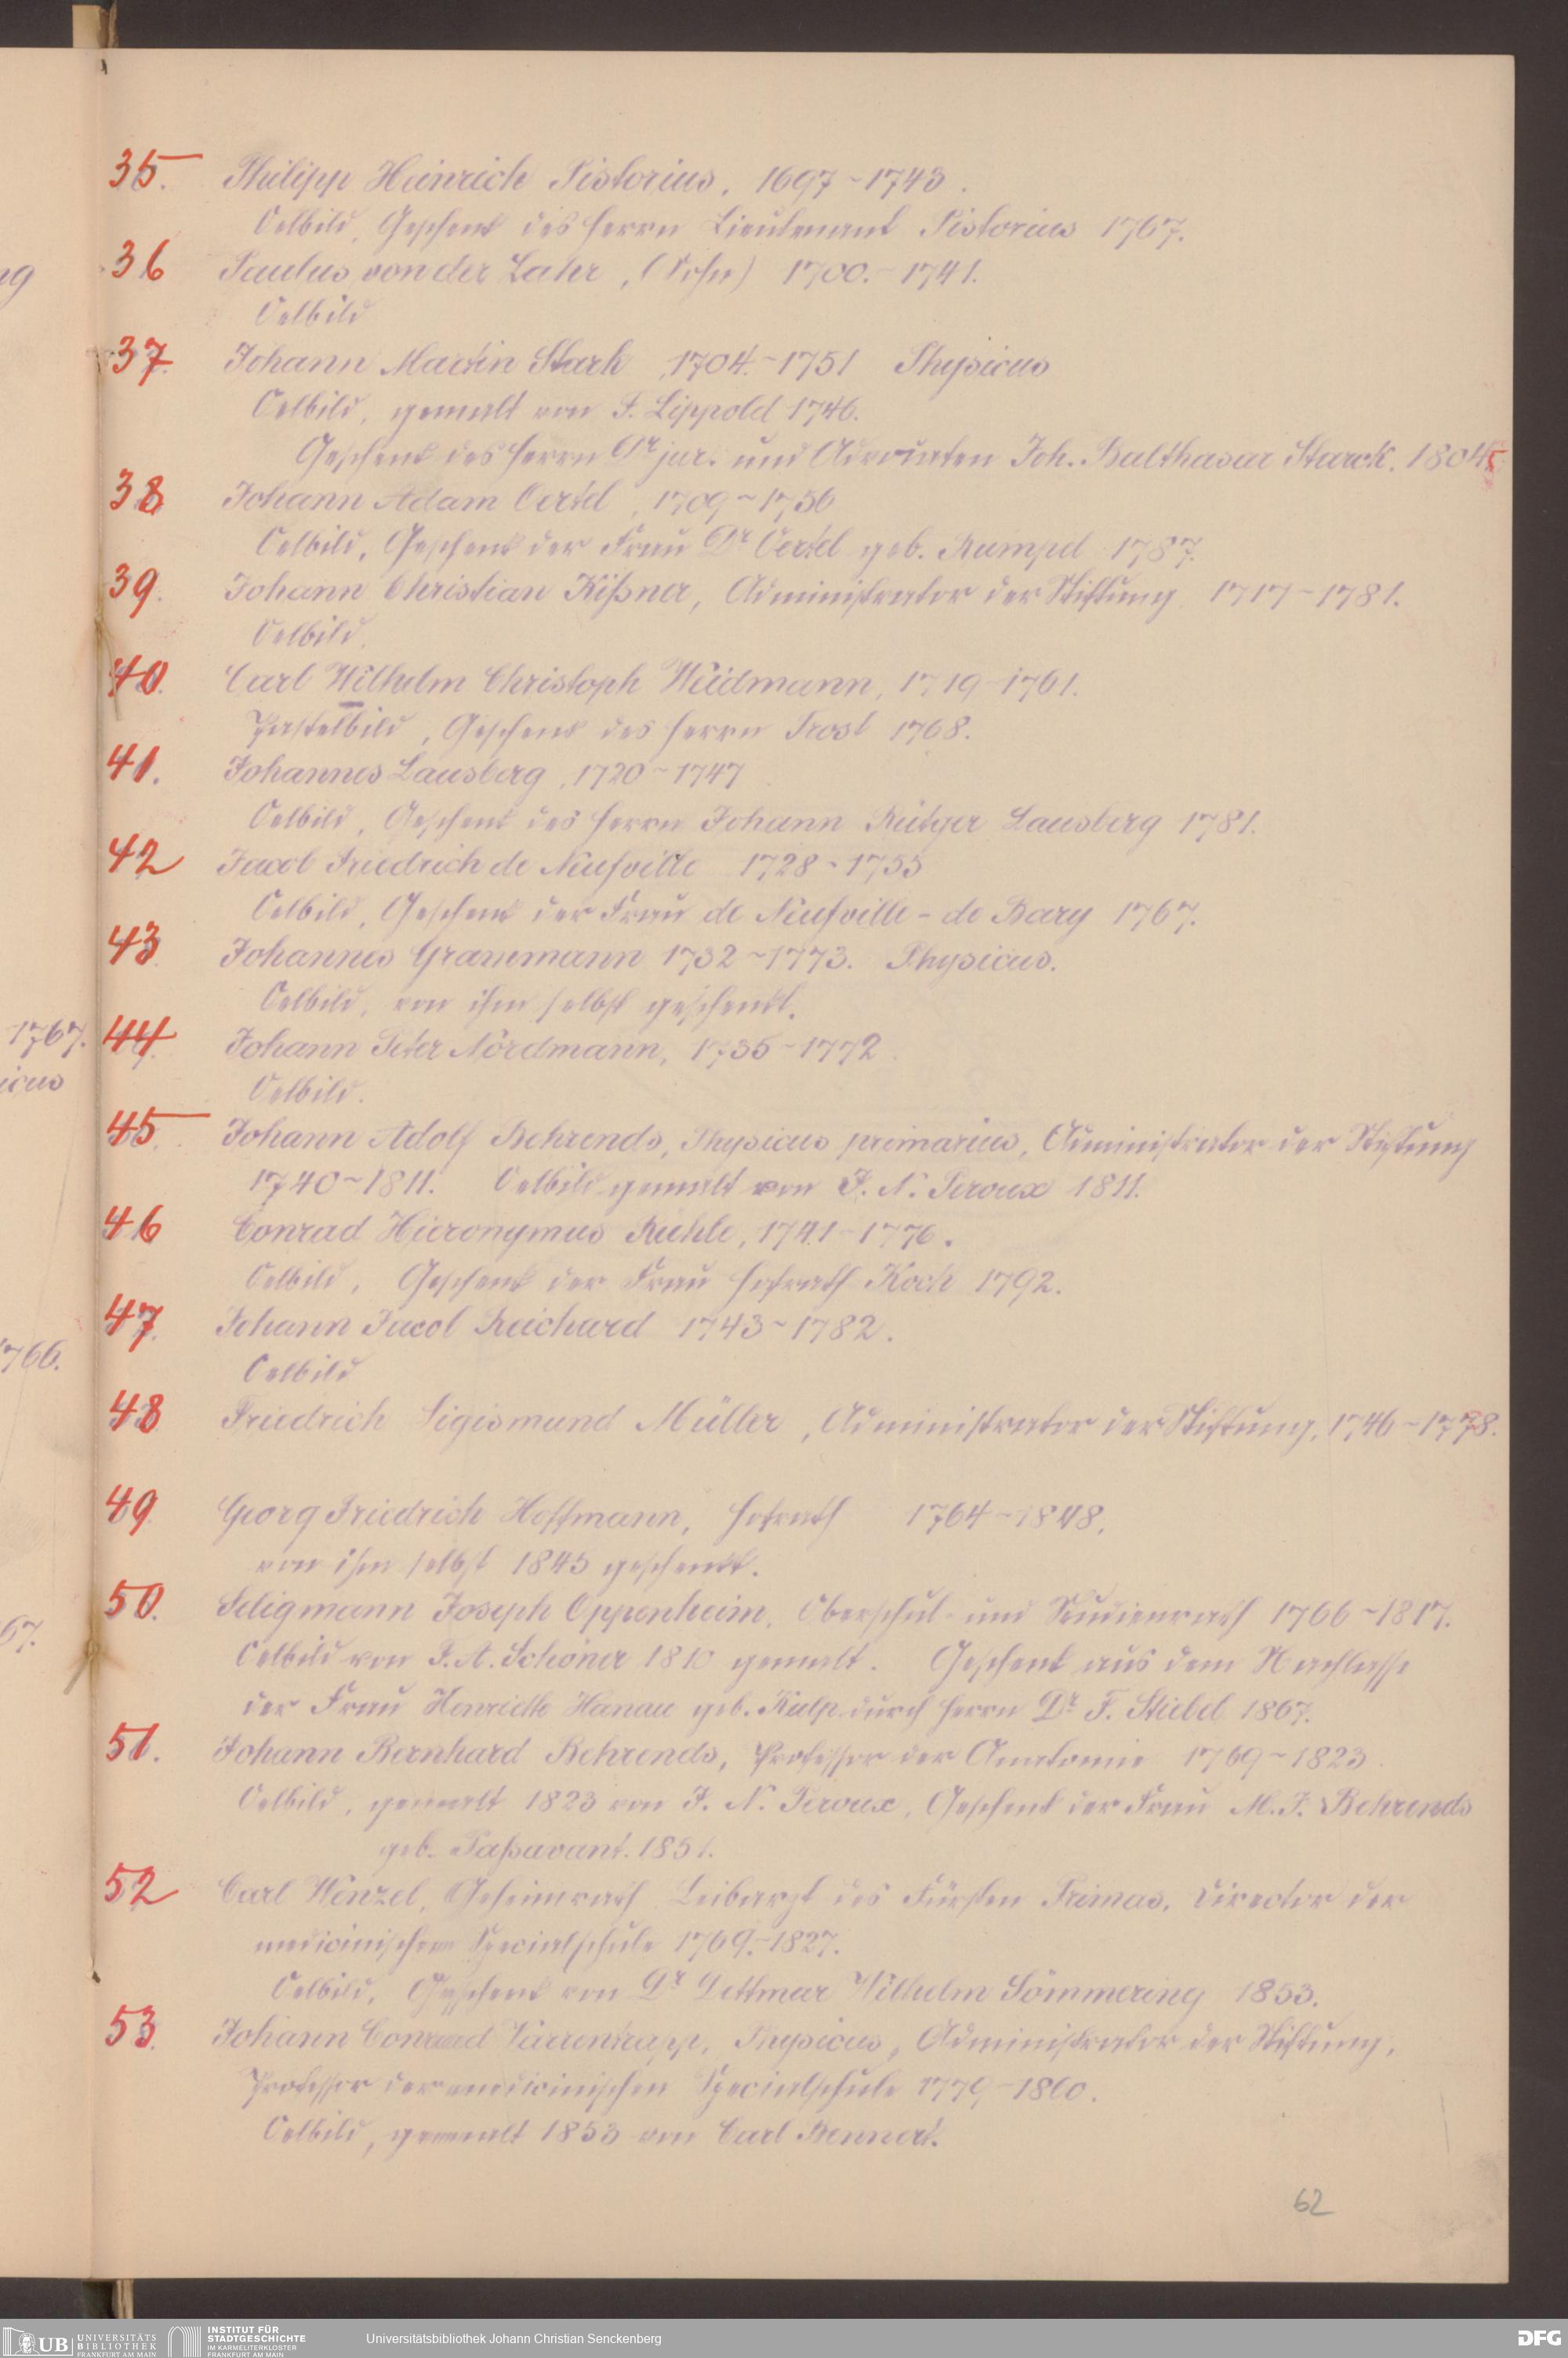 35. Philipp Heinrich Pistorius, 1697 - 1743.
Oelbild, Geschenk des Herrn Lieutenant Pistorius 1767.
36 Paulus von der Lahr, (Sohn) 1700. - 1741.
Oelbild
37. Johann Martin Stark, 1704. - 1751 Physicus
Oelbild, gemalt von F. Lippold 1746.
Geschenk des Herrn Dr jur. und Advocaten Joh. Balthasar Starck.
38 Johann Adam Oertel, 1709 - 1756
Oelbild, Geschenk der Frau Dr Oertel geb. Rumpel 1787.
39. Johann Christian Kißner, Administrator der Stiftung 1717 - 1781.
Oelbild.
40. Carl Wilhelm Christoph Weidmann, 1719 - 1761.
Pastelbild, Geschenk des Herrn Prost 1768.
41. Johannes Lausberg, 1720 - 1747
Oelbild, Geschenk des Herrn Johann Rütger Lausberg 1781.
42 Jacob Friedrich de Neufville 1728 - 1755
Oelbild, Geschenk der Frau de Neufville - de Bary 1767.
43 Johannes Grammann 1732 - 1773. Physicus.
Oelbild, von ihm selbst geschenkt.
44. Johann Peter Nordmann, 1735 - 1772
Oelbild.
45. Johann Adolf Behrends, Physicus primarius, Administrator der Stiftung
1740 - 1811. Oelbild gemalt von J. N. Peroux 1811.
46 Conrad Hieronymus Riehle, 1741 - 1776.
Oelbild, Geschenk der Frau Hofrath Koch 1792.
47. Johann Jacob Reichard 1743 - 1782.
Oelbild
48 Friedrich Sigismund Müller, Administrator der Stiftung, 1746 - 1778.
49 Georg Friedrich Hoffmann, Hofrath 1764 - 1848,
von ihm selbst 1845 geschenkt.
50. Seligmann Joseph Oppenheim, Oberschul- und Studienrath 1766 - 1817.
Oelbild von F. A. Schöner 1810 gemalt. Geschenk aus dem Nachlasse
der Frau Henriette Hanau geb. Kulp durch Herrn Dr F. Stiebel 1867.
51. Johann Bernhard Behrends, Professor der Anatomie 1769 - 1823.
Oelbild, gemalt 1823 von J. N. Peroux, Geschenk der Frau M. F. Behrends
geb. Paßavant. 1851.
52 Carl Wenzel, Geheimrath Leibarzt des Fürsten Primas, Director der
medicinischen Specialschule 1769. - 1827.
Oelbild, Geschenk von Dr Dettmar Wilhelm Sömmering 1853.
53. Johann Conrad Varrentrapp, Physicus, Administrator der Stiftung,
Professor der medicinischen Specialschule 1779 - 1860.
Oelbild, gemalt 1853 von Carl Bennert.
62
ng
1767.
icus
1766.
67.
UB UNIVERSITÄTS
BIBLIOTHEK
FRANKFURT AM MAIN
INSTITUT FÜR
STADTGESCHICHTE
IM KARMELITERKLOSTER
FRANKFURT AM MAIN
Universitätsbibliothek Johann Christian Senckenberg
DFG